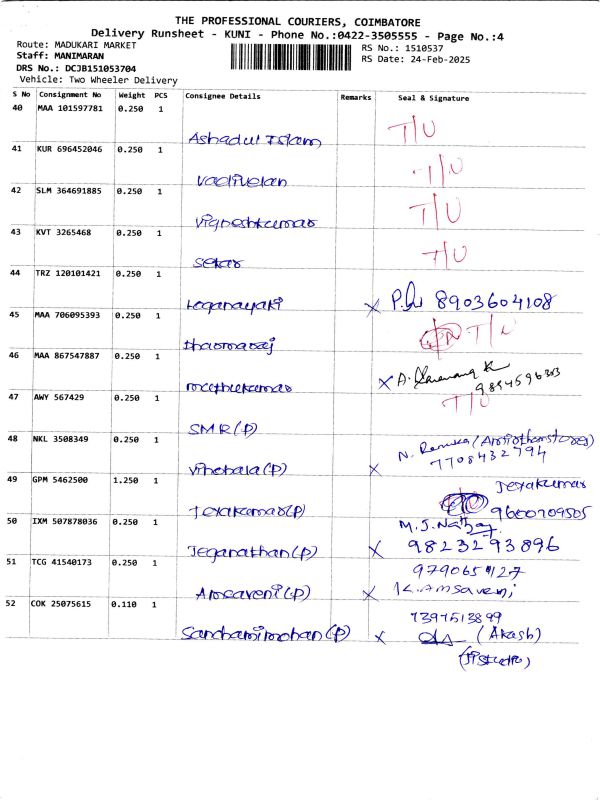 THE PROFESSIONAL COURIERS, COIMBATORE
Delivery Runsheet - KUNI - Phone No.:0422-3505555 - Page No.:4
Route: MADUKARI MARKET
Staff: MANIMARAN
DRS No.: DCJB151053704
Vehicle: Two Wheeler Delivery
RS No.: 1510537
RS Date: 24-Feb-2025
S No Consignment No Weight PCS Consignee Details Remarks Seal & Signature
40 MAA 101597781 0.250 1
Ashadul Islam T/U
41 KUR 696452046 0.250 1
Vadivelan T/U
42 SLM 364691885 0.250 1
Vigneshkumar T/U
43 KVT 3265468 0.250 1
Sekar T/U
44 TRZ 120101421 0.250 1
Loganayaki X 8903604108
45 MAA 706095393 0.250 1
Dharmaraj T/U
46 MAA 867547887 0.250 1
Muthukumar X
47 AWY 567429 0.250 1
SMR (P) T/U
48 NKL 3508349 0.250 1
N. Renuka
7708432794
X
49 GPM 5462500 1.250 1
Jeyakumar
Jeyakumar (P) 9600709505
50 IXM 507878036 0.250 1
Jeganathan (P) X 9823293896
51 TCG 41540173 0.250 1
Amsaveni (P) X K. Amsaveni
52 COK 25075615 0.110 1
7397513899
(P) X (Akash)